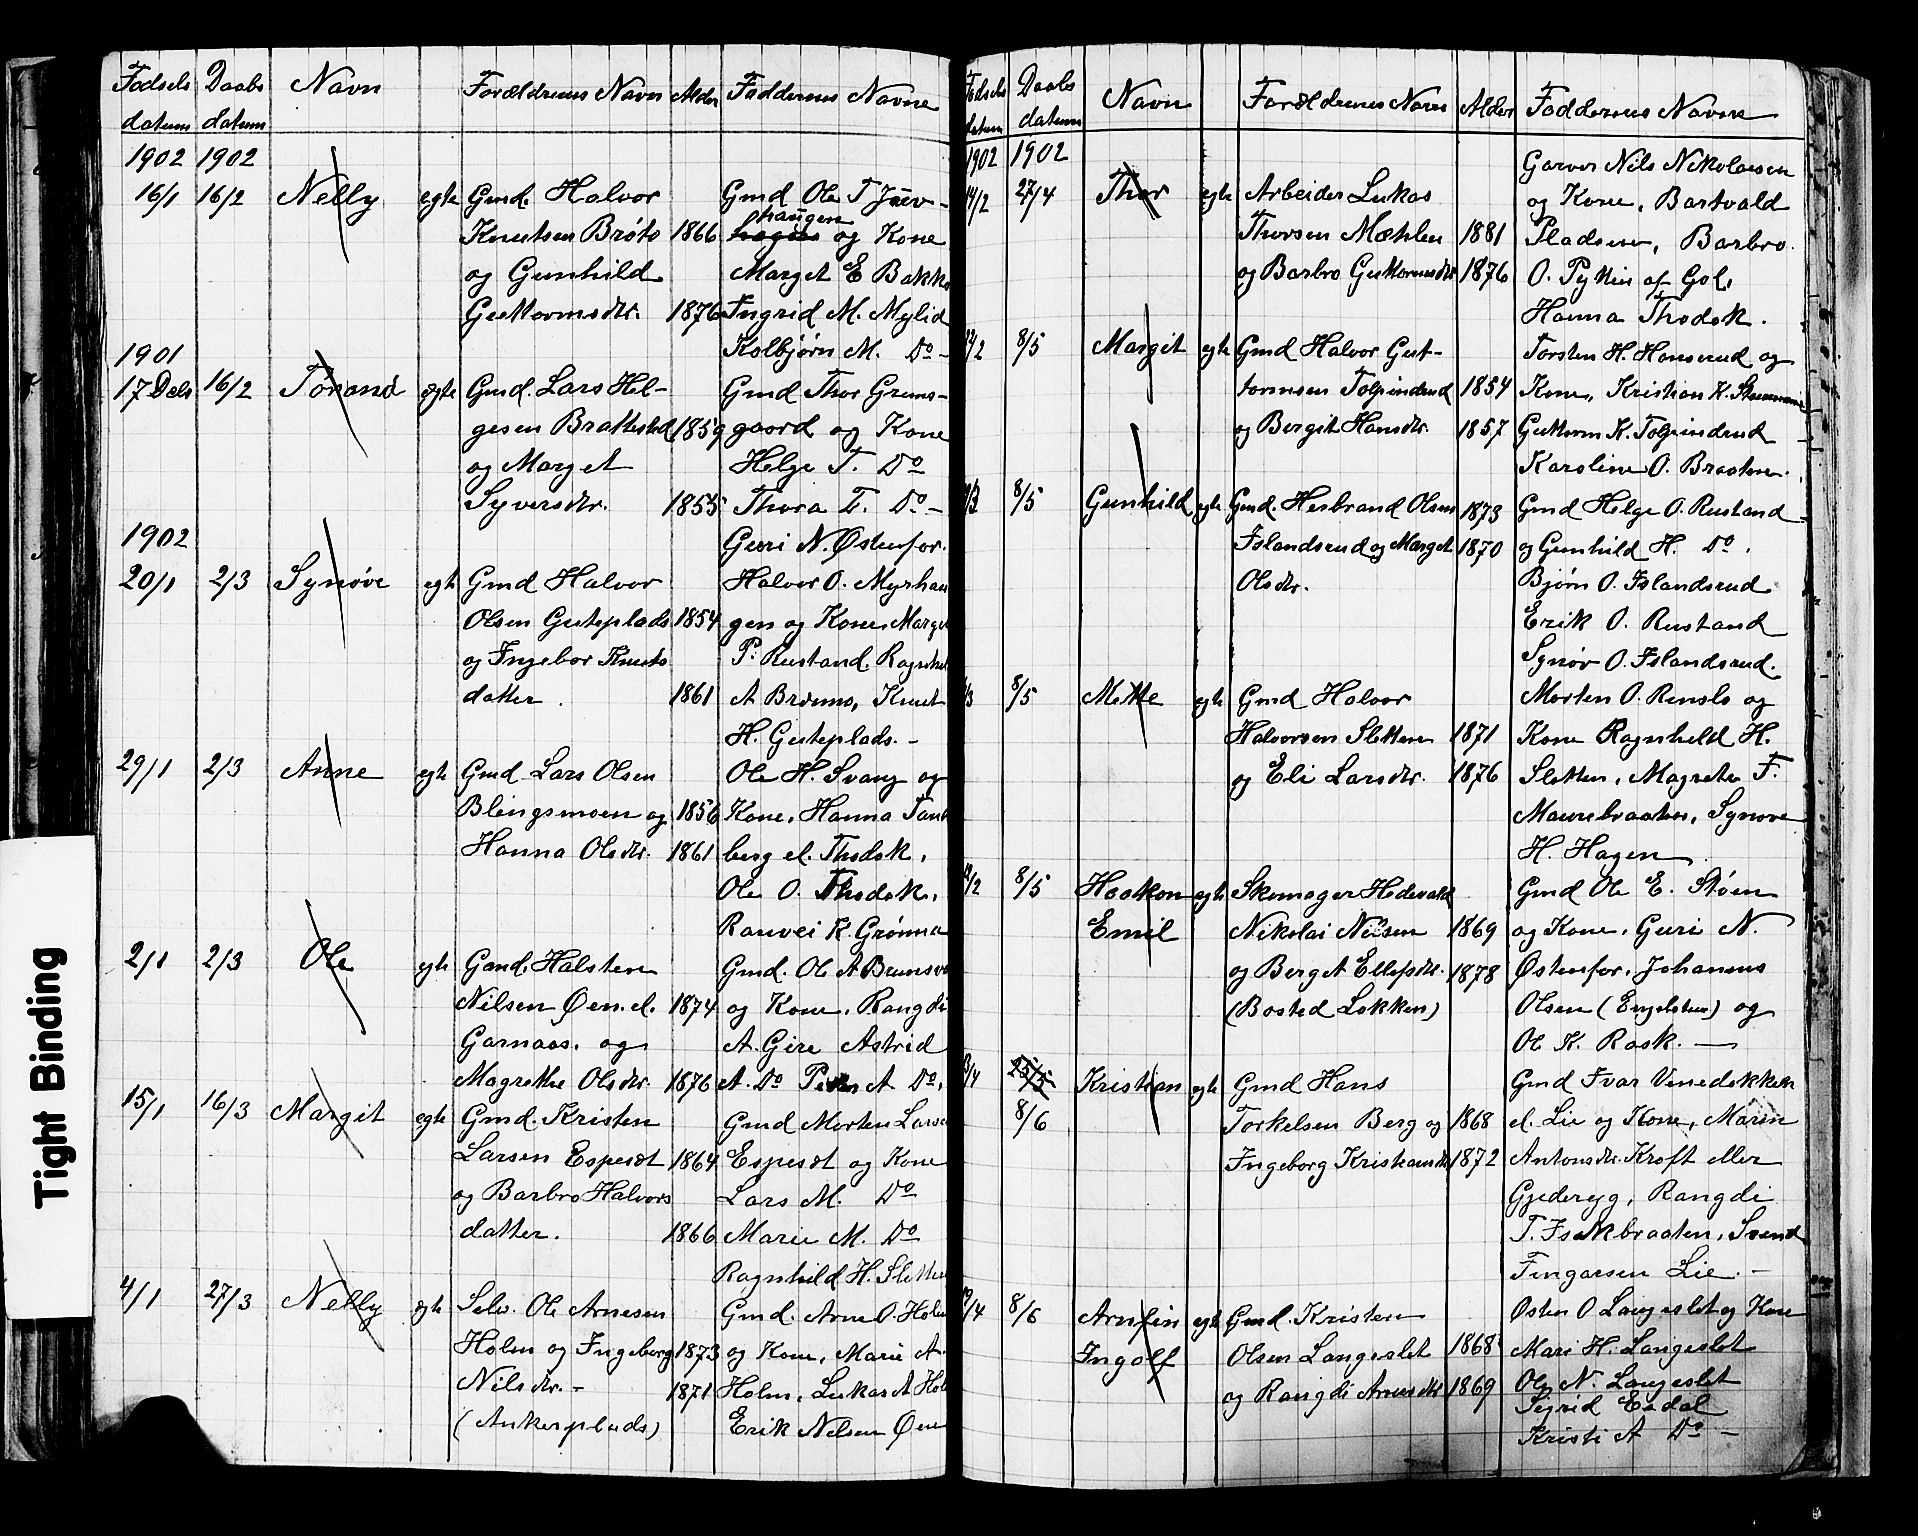 Fødsels datum Daabs datum Navn Forældrenes Navn Alder Faddernes Navne
1902 1902
16/1 16/2 Nelly egte Gmd. Halvor Gmd Ole T Juv-
haugen
Knutsen Brøto 1866 og Kone
og Gunhild Marget E Bakke
Guttormsdtr. 1876 Ingrid M. Mylid
1901 Kolbjørn M. Do -
17 Dcb 16/2 Torand ægte Gmd. Lars Hel- Gmd Thor Grims-
gesen Brattested 1859 gaard og Kone
og Marget Helge T. Do
Syversdtr. 1855 Thora T. Do -
1902 Guri N. Østenfor.
20/1 2/3 Synøve egte Gmd Halvor Halvor O. Myrhau
Olsen Gusteplads 1854 gen og Kone, Marget
og Ingebor Knuts P. Rustand. Ragnhild
datter. 1861 A Broms, Knut
H. Gusteplads. -
29/1 2/3 Anne egte Gmd. Lars Olsen Ole H. Svang og
Blingsmoen og 1856 Kone, Hanna Tand
Hanna Olsdtr. 1861 berg el. Thodok,
Ole O. Thodok,
Ranvei K. Grønna
2/1 2/3 Ole egte Gmd. Halsten Gmd. Ole A Brunsvo
Nilsen Øen. el. 1874 og Kone, Rangdi
Garnaas, og A. Gire Astrid
Magrethe Olsdtr. 1876 A. Do Peder A Do.
15/1 16/3 Margit egte Gmd. Kristen Gmd Morten Larsen
Larsen Espesdt 1864 Espesdt og Kone
og Barbro Halvors Lars M. Do
datter. 1866 Marie M. Do
Ragnhild H. Sletten
4/1 27/3 Nelly egte Selv. Ole Arnesen Gmd. Arne O. Holm
Holm og Ingeborg 1873 og Kone, Marie A.
Nilsdtr. - 1871 Holm, Lukas A Holm
(Ankerplads) Erik Nilsen Øen
Fødsels datum Daabs datum Navn Forældrenes Navn Alder Faddernes Navne
1902 1902 Garver Nils Nikolaisen
14/2 27/4 Thor egte Arbeider Lukas og Kone, Bartvald
Thorsen Mæhlen 1881 Pladsen, Barbro
og Barbro Guttormsdtr 1876 O. Pytten af Gol,
Hanna Thodok.
24/2 8/5 Margit egte Gmd Halvor Gut- Torsten H. Hansrud og
tormsen Tolpinsrud 1854 Kone, Kristian K.
og Bergit Hansdtr. 1857 Guttorm K. Tolpinsrud
Karoline O. Braaten.
8/5 Gunhild egte Gmd. Herbrand Olsen 1873 Gmd Helge O. Rustand
Islandsrud og Marget 1870 og Gunhild H. Do.
Olsdtr. Bjørn O. Islandsrud
Erik O. Rustand
Synøv O. Islandsrud.
/3 8/5 Mette egte Gmd Halvor Morten O. Renslo og
Halvorsen Sletten 1871 Kone Ragnhild H.
og Eli Larsdtr. 1876 Sletten, Magrete T.
Maurebraaten, Synøve
H. Hagen
/2 8/5 Haakon egte Skomager Hedevald Gmd Ole E. Støen
Emil Nikolai Nilsen 1869 og Kone, Guri N.
og Berget Ellefsdtr. 1878 Østenfor, Johannes
(Bosted Løkken) Olsen (Engelsteen) og
Ole K. Rask. -
/4 25/5 Kristian egte Gmd Hans Gmd Ivar Venedokken
8/6 Torkelsen Berg og 1868 el. Lie og Kone, Marin
Ingeborg Kristiansdtr 1872 Antonsdtr. Kroft eller
Gjederyg, Rangdi
T. Isakbraaten, Svend
Fingarsen Lie. -
/4 8/6 Arnfin egte Gmd. Kristen Østen O Langeslet og Kone
Ingolf Olsen Langeslet 1868 Mari H. Langeslet
og Rangdi Arnesdtr 1869 Ole N. Langeslet
Sigrid Esdal
Kristi A Do -
Tight Binding